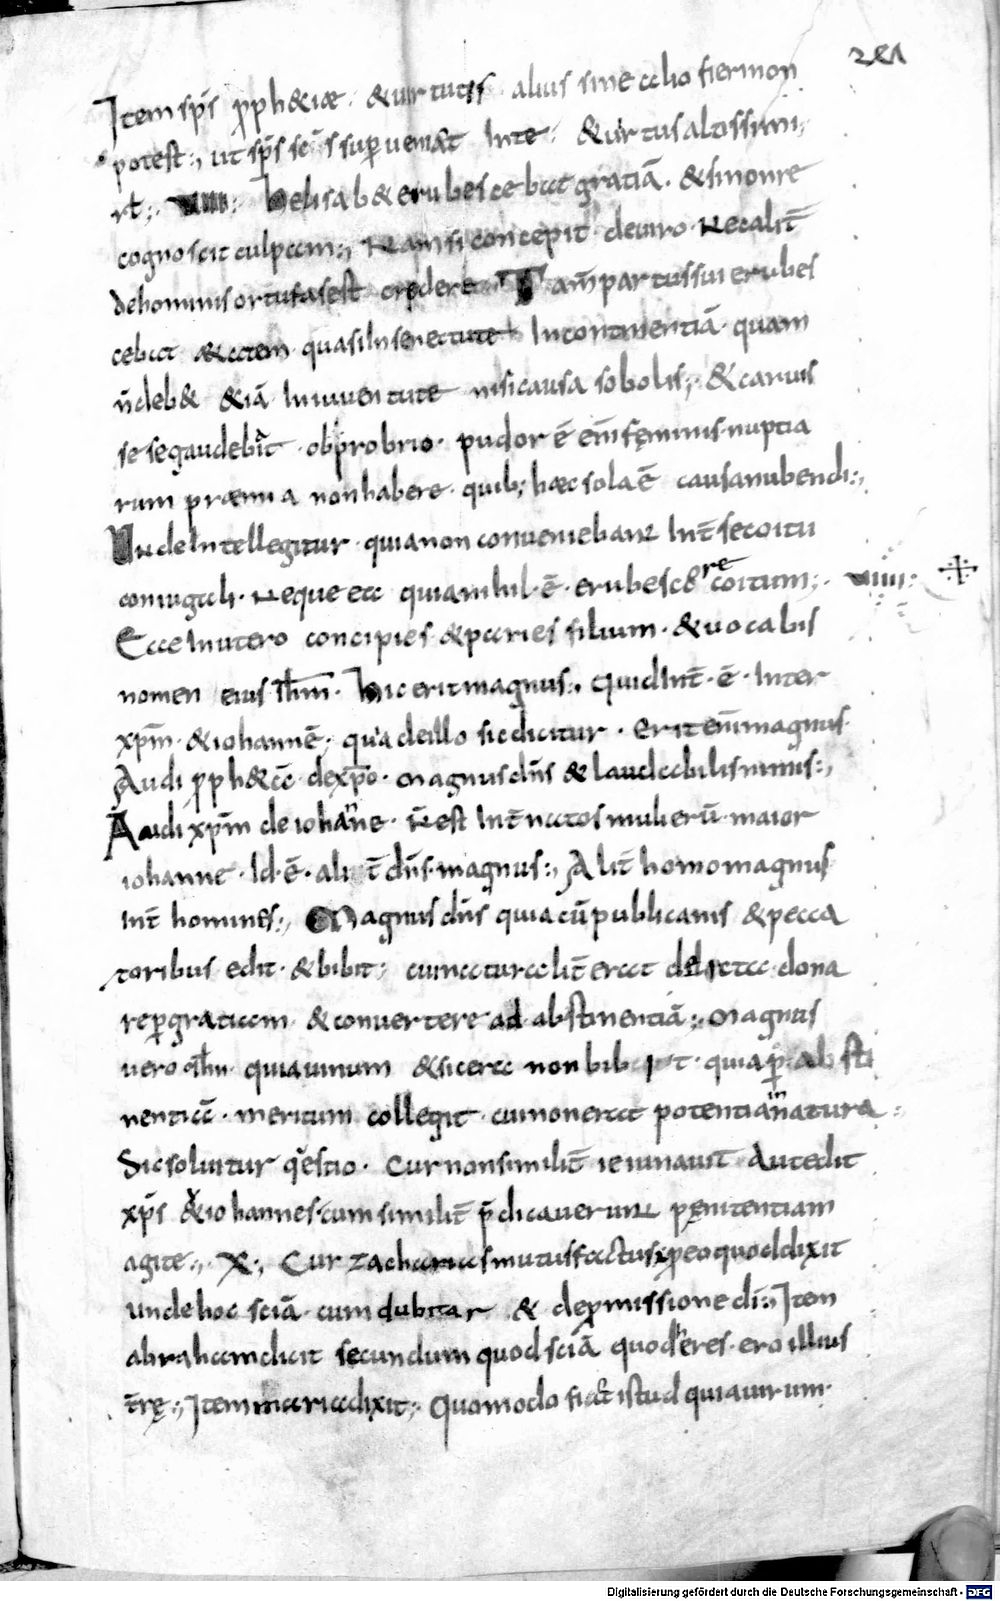 281
Item sp̄s p̱ph&iae · &uirtutis alius sine alio fieri non
potest:, ut sp̄s sc̄s sup̱ueniat In te · &uirtus altissimi,
rł;. VIIII: helisab& erubescebat gratiā · &si non re
cognoscit culpam:, Nam si concepit · de uiro Necalit̄
de hominis ortu fas est credere · Tam̄ partus sui erubes
cebat aetatem quasi In senectute Incontinentiā · quam
n̄ deb& &iā In iuuentute nisi causa sobolis; &caruis
se se gaudebat · obprobrio · pudor ē eni᷑ feminis · nuptia
rum praemia non habere · quib; haec sola ē causa nubendi:,
Unde Intellegitur · quia non conuenieban Int̄ se coitu
coniugali · Neque ea quia nihil · ē · erubescere coitum;. VIIII:
Ecce In utero concipies · &paries filium · &uocabis
nomen eius ih̄m · hic erit magnus:, quid Int̄ · ē · Inter
xp̄m · &iohannē; quia de illo sic dicitur · erit eni᷑ magnus
Audi p̱ph&ā de xp̄o · magnus dn̄s & laudabilis nimis:,
Audi xp̄m de iohanne · N̄ est Int̄ natos mulierū · maior
iohanne · Id · ē · alit̄ dn̄s · magnus:, Alit̄ homo magnus
Int̄ homines:, Magnus dn̄s quia cū publicanis &pecca
toribus edit · &bibit; cum a turalit̄ erat delicta dona
re p̱ gratiam &conuertere ad abstinentiā:, magnus
uero ioh̄n quia uinum &sicera non bibit · quia p̱ absti
nentiā · meritum collegit cum non erat potentia In natura
Sic soluitur q̄estio · Cur non similit̄ ieiunauit Aut edit
xp̄s &iohannes · cum similit̄ p̄dicauerun penitentiam
agite:, X:, Cur zacharias mutus factus p̱ eo quod dixit
unde hoc sciā · cum dubitar & de p̱missione dī:, Item
abraham dicit secundum quod sciā quod heres · ero illius
t̄rę:, Item maria dixit; Quomodo fiat istud quia uirum·